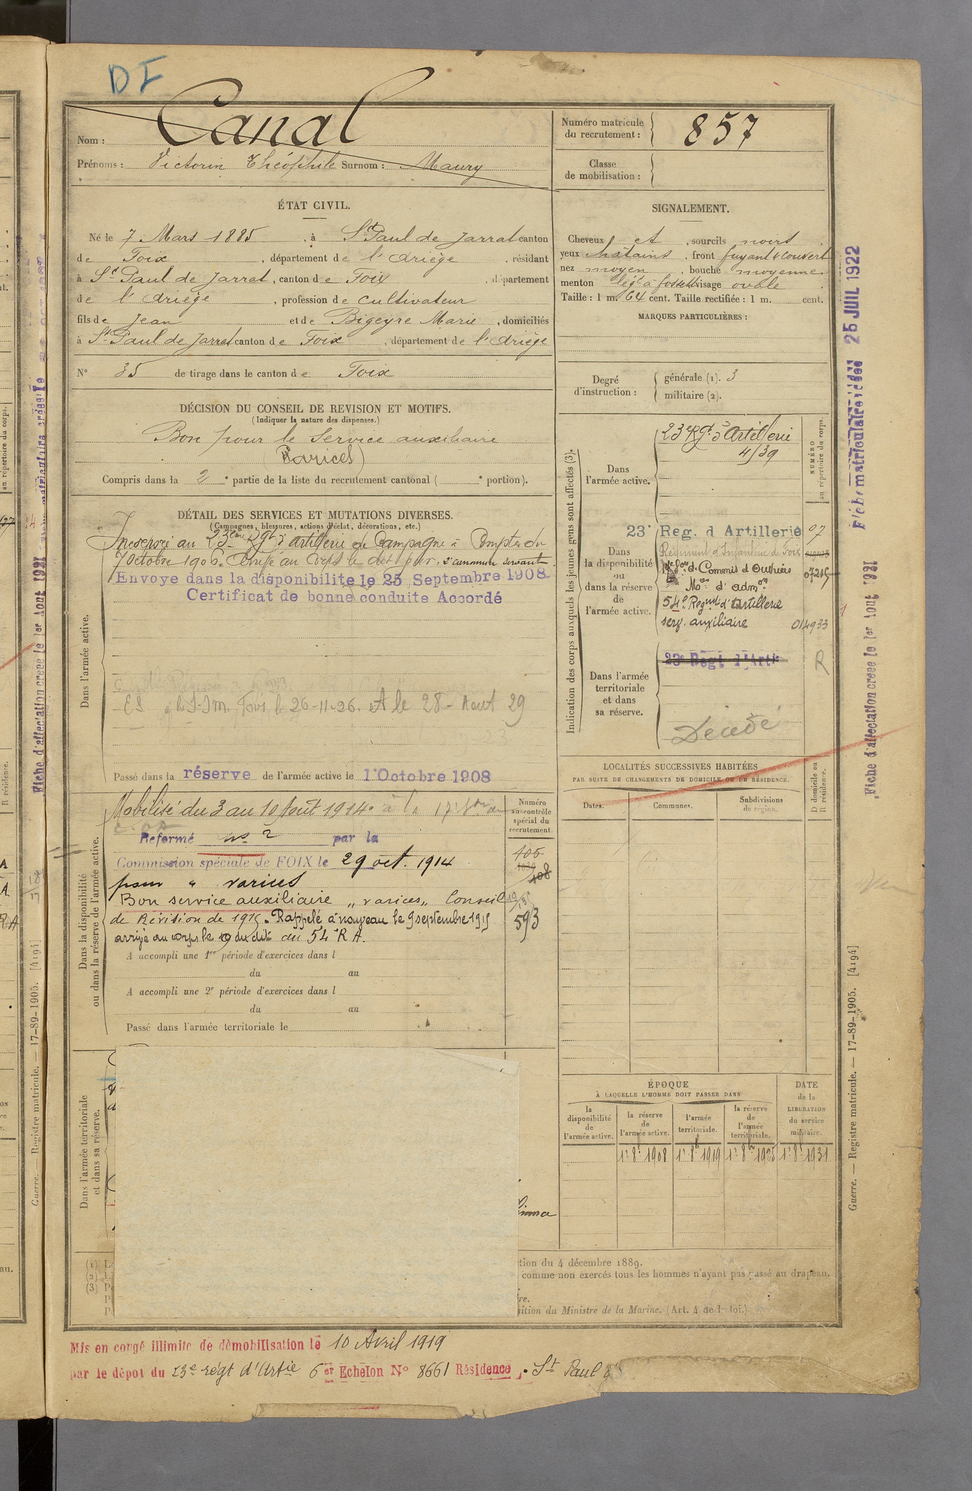 DF
Nom : Canal
Prénoms : Victorin Théophile Surnom : Maury
Numéro matricule du recrutement : 857
Classe de mobilisation :
ÉTAT CIVIL.
Né le 7 Mars 1885, à St Paul de Jarrat canton
de Foix, département de l'Ariège, résidant
à St Paul de Jarrat, canton de Foix, département
de l'Ariège, profession de cultivateur
fils de Jean et de Bigeyre Marie, domiciliés
à St Paul de Jarrat canton de Foix, département de l'Ariège
N° 35 de tirage dans le canton de Foix
SIGNALEMENT.
Cheveux et, sourcils noirs
yeux chatains, front fuyant & couvert
nez moyen, bouche moyenne
menton à fossette visage ovale
Taille : 1 m. 64 cent. Taille rectifiée : 1 m. cent.
MARQUES PARTICULIÈRES :
Degré d'instruction : générale (1). 3
militaire (2).
DÉCISION DU CONSEIL DE REVISION ET MOTIFS.
(Indiquer la nature des dispenses.)
Bon pour le Service auxiliaire
(Varices)
Compris dans la 2e partie de la liste du recrutement cantonal ( e portion).
DÉTAIL DES SERVICES ET MUTATIONS DIVERSES.
(Campagnes, blessures, actions d'éclat, décorations, etc.)
Dans l'armée active.
Incorporé au 23ème Rgt d'artillerie de Campagne à Compter du
7 octobre 1906. Arrivé au Corps le dit jour, 2e cannonier servant
Envoyé dans la disponibilité le 25 Septembre 1908
Certificat de bonne conduite Accordé
Foix le 26-11-26. et le 28 - Aout 29
Passé dans la réserve de l'armée active le 1 Octobre 1908
Dans la disponibilité ou dans la réserve de l'armée active.
Mobilisé du 3 au 10 Aout 1914
Réformé n° 2 par la
Commission spéciale de FOIX le 29 oct. 1914
pour " varices
Bon service auxiliaire „ varices „ Conseil
de Révision de 1915. Rappelé à nouveau le 9 septembre 1915
arrivé au corps le 9 du dit au 54e R A.
A accompli une 1re période d'exercices dans l
du au
A accompli une 2e période d'exercices dans l
du au
Passé dans l'armée territoriale le
Numéro au contrôle spécial du recrutement.
105
108
593
Dans l'armée territoriale et dans sa réserve.
Indication des corps auxquels les jeunes gens sont affectés (3).
NUMÉRO au répertoire du corps.
Dans l'armée active.
23 Rgt d'Artillerie
4/39
Dans la disponibilité ou dans la réserve de l'armée active.
23e Reg. d Artillerie 97
Régiment d'Infanterie de Foix
Son d. Commis et Ouvriers
Mres d'admon
54e Regmt d'artillerie
serv. auxiliaire 014933
Dans l'armée territoriale et dans sa réserve.
23e Régt d'Artie R
Décédé
LOCALITÉS SUCCESSIVES HABITÉES
PAR SUITE DE CHANGEMENTS DE DOMICILE OU DE RÉSIDENCE.
Dates. Communes. Subdivisions de région. D domicile ou R résidence.
ÉPOQUE
À LAQUELLE L'HOMME DOIT PASSER DANS
la disponibilité de l'armée active. la réserve de l'armée active. l'armée territoriale. la réserve de l'armée territoriale.
DATE de la LIBÉRATION du service militaire.
1r 8b 1908 1r 8b 1919 1r 8b 1925 1r 8b 1931
tion du 4 décembre 1889.
comme non exercés tous les hommes n'ayant pas passé au drapeau.
ition du Ministre de la Marine. (Art. 4 de la loi.)
Mis en congé illimité de démobilisation le 10 Avril 1919
par le dépot du 23e régt d'Artie 6er Echelon N° 8661 Résidence : St Paul d
Fiche matriculaire créée 25 JUIL 1922
Fiche d'affectation créée le 1er Aout 1921
Guerre. — Registre matricule. — 17-89-1905. [4194]
Fiche d'affectation créée le 1er Aout 1921
Guerre. — Registre matricule. — 17-89-1905. [4194]